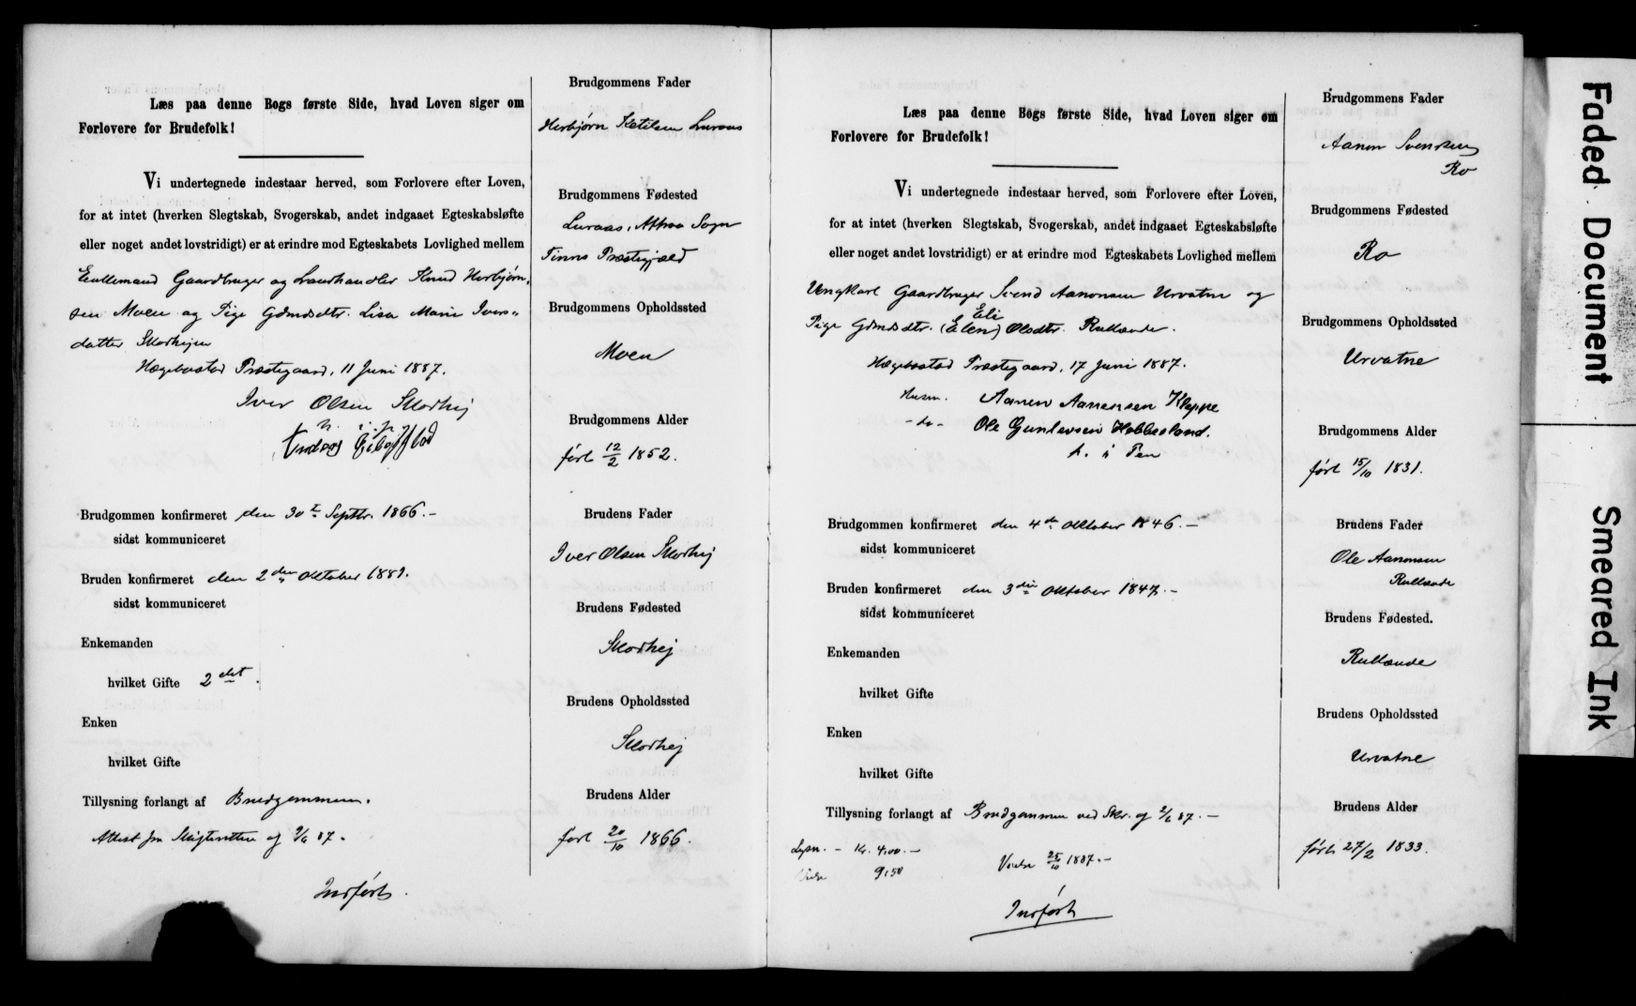 Læs paa denne Bogs første Side, hvad Loven siger om
Forlovere for Brudefolk!
Vi undertegnede indestaar herved, som Forlovere efter Loven,
for at intet (hverken Slegtskab, Svogerskab, andet indgaaet Egteskabsløfte
eller noget andet lovstridigt) er at erindre mod Egteskabets Lovlighed mellem
Enkemand Gaardbruger og Landhandler Knud Herbjørn-
sen Moen og Pige Gdmdsdtr. Lisa Marie Ivers-
datter Skorhejen
Hægebostad Præstegaard, 11 Juni 1887.
Iver Olsen Skorhej
Brudgommen konfirmeret den 30te Septbr. 1866.-
sidst kommuniceret
Bruden konfirmeret den 2den Oktober 1881.
sidst kommuniceret
Enkemanden
hvilket Gifte 2det.
Enken
hvilket Gifte
Tillysning forlangt af Brudgommen.
Attest fra Skifteretten af 7/6 87.
Indført.
Brudgommens Fader
Herbjørn Ketilsen Luraas
Brudgommens Fødested
Luraas, Attraa Sogn
Tinns Præstegjæld
Brudgommens Opholdssted
Moen
Brudgommens Alder
født 12/2 1852.
Brudens Fader
Iver Olsen Skorhej
Brudens Fødested
Skorhej
Brudens Opholdssted
Skorhej
Brudens Alder
født 20/10 1866.
Læs paa denne Bogs første Side, hvad Loven siger om
Forlovere for Brudefolk!
Vi undertegnede indestaar herved, som Forlovere efter Loven,
for at intet (hverken Slegtskab, Svogerskab, andet indgaaet Egteskabsløfte
eller noget andet lovstridigt) er at erindre mod Egteskabets Lovlighed mellem
Ungkarl Gaardbruger Svend Aanonsen Urvatne og
Eli
Pige Gdmdsdtr. (Elen) Olsdtr. Rullande.
Hægebostad Præstegaard, 17 Juni 1887.
Husm. Aanen Aanensen Kleppe
-do- Ole Gunlevsen Hobbesland.
h. i Pen
Brudgommen konfirmeret den 4de Oktober 1846.-
sidst kommuniceret
Bruden konfirmeret den 3die Oktober 1847.-
sidst kommuniceret
Enkemanden
hvilket Gifte
Enken
hvilket Gifte
Tillysning forlangt af Brudgommen ved Skr. af 2/6 87.-
Lysn. - Kr. 4.00.-
Vielse 9.50
Viede 25/10 1887.-
Indført
Brudgommens Fader
Aanon Svendsen
Ro
Brudgommens Fødested
Ro
Brudgommens Opholdssted
Urvatne
Brudgommens Alder
født 15/10 1831.
Brudens Fader
Ole Aanonsen
Rullande
Brudens Fødested.
Rullande
Brudens Opholdssted
Urvatne
Brudens Alder
født 27/2 1833.
Faded Document
Smeared Ink